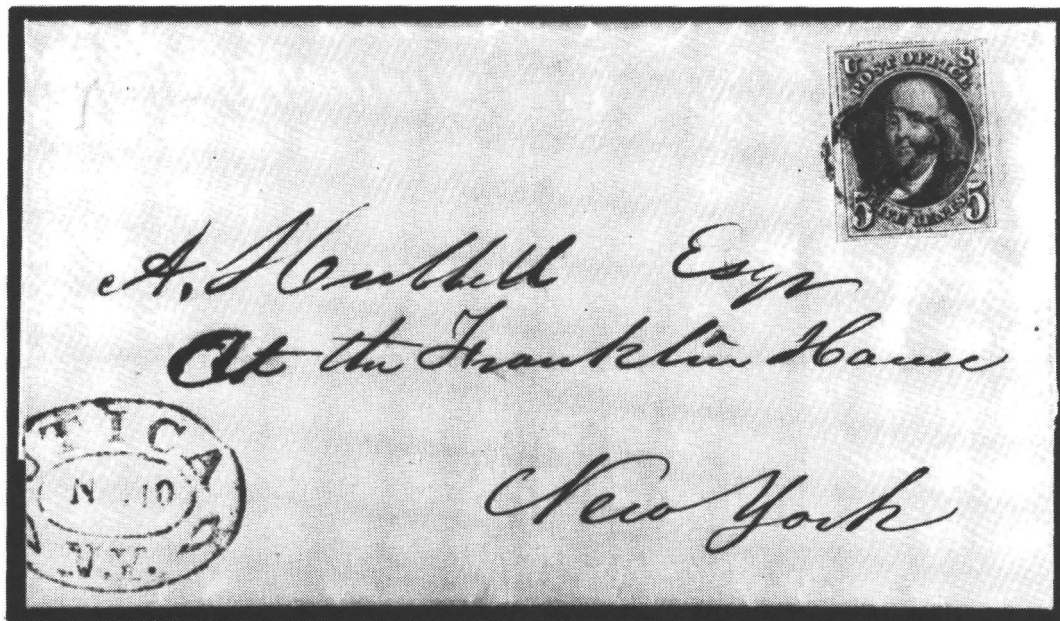 U S
POST OFFICE
FIVE CENTS
5 5
A. Hubbell Esqr
At the Franklin House
New York
UTICA
N 10
N.Y.